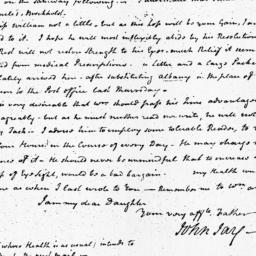 on the Saturday following
Household.
William not a little, but as this Loss will be your Gain, I am
to it. I hope he will most inflexibly abide by his Resolution
Red will restore strength to his Eyes. Much Relief it seems
from medical Prescriptions. a letter and a large Packet
lately arrived here, after substituting Albany in the place of
to the Post office last Thursday.
is very desirable that Wm should pass his Time advantageou
agreably. but as he must neither read nor write, he will
Task. I advise him to employ some tolerable Reader, to
four Hours in the Course of every Day. He may charge
of it. He should never be unmindful that to encrease
of Eye sight, would be a bad bargain. my Health con
as when I last wrote to you — Remember me to Wm
I am my dear Daughter
Your very affte. Father
John Jay
(whose Health is as usual) intends to
the next mail